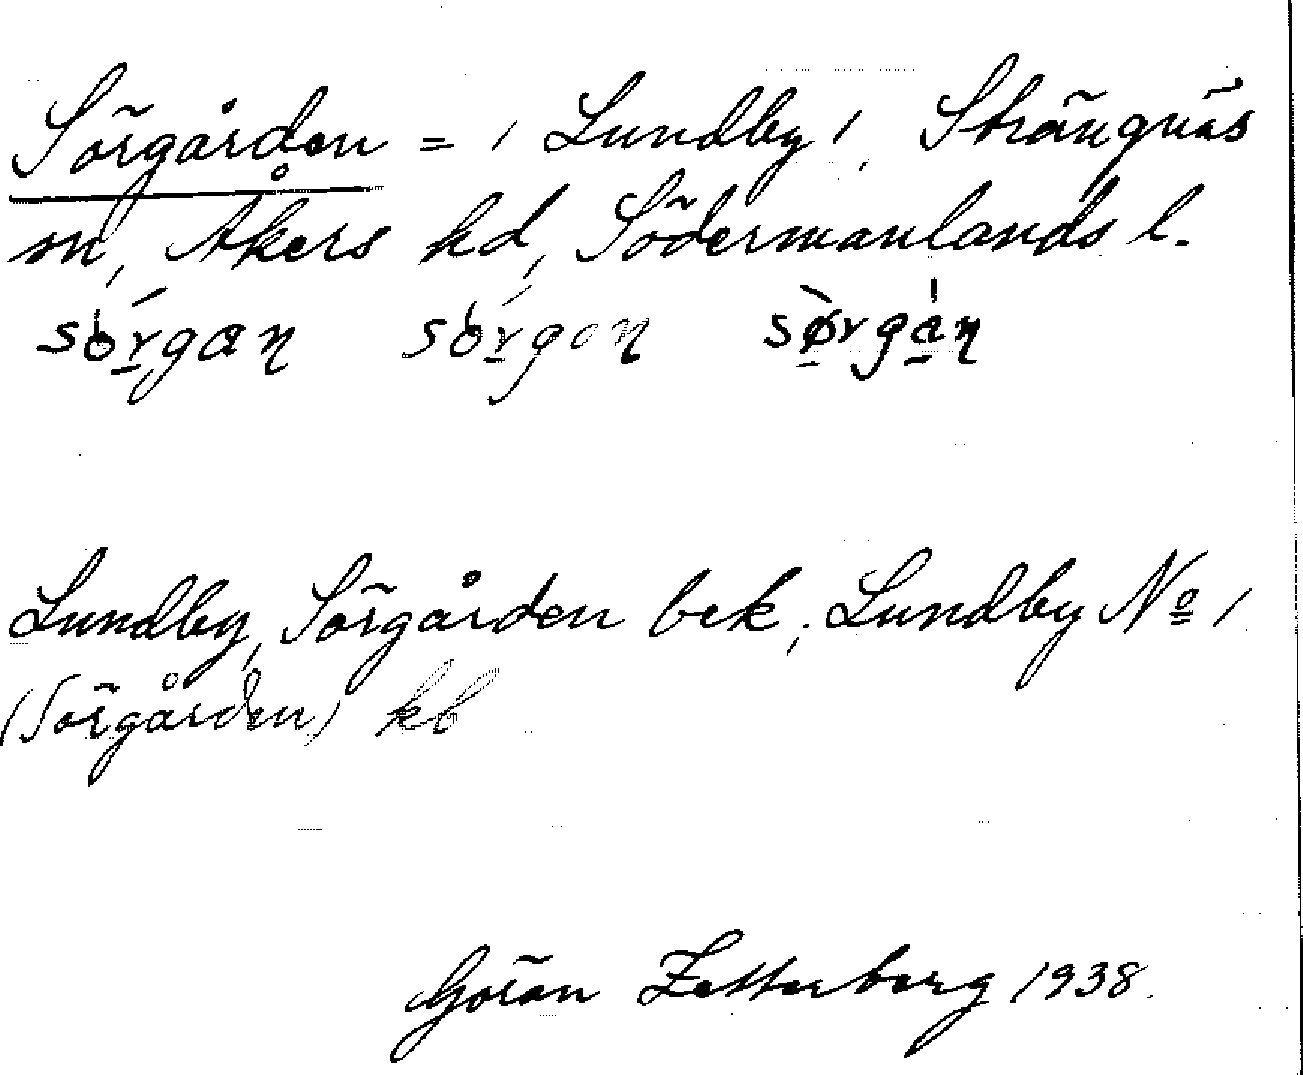 Sörgården = 1 Lundby 1, Strängnäs
sn, Åkers hd, Södermanlands l.
Lundby, Sörgården bek; Lundby No 1
(Sörgården) kb
Göran Zetterberg 1938.